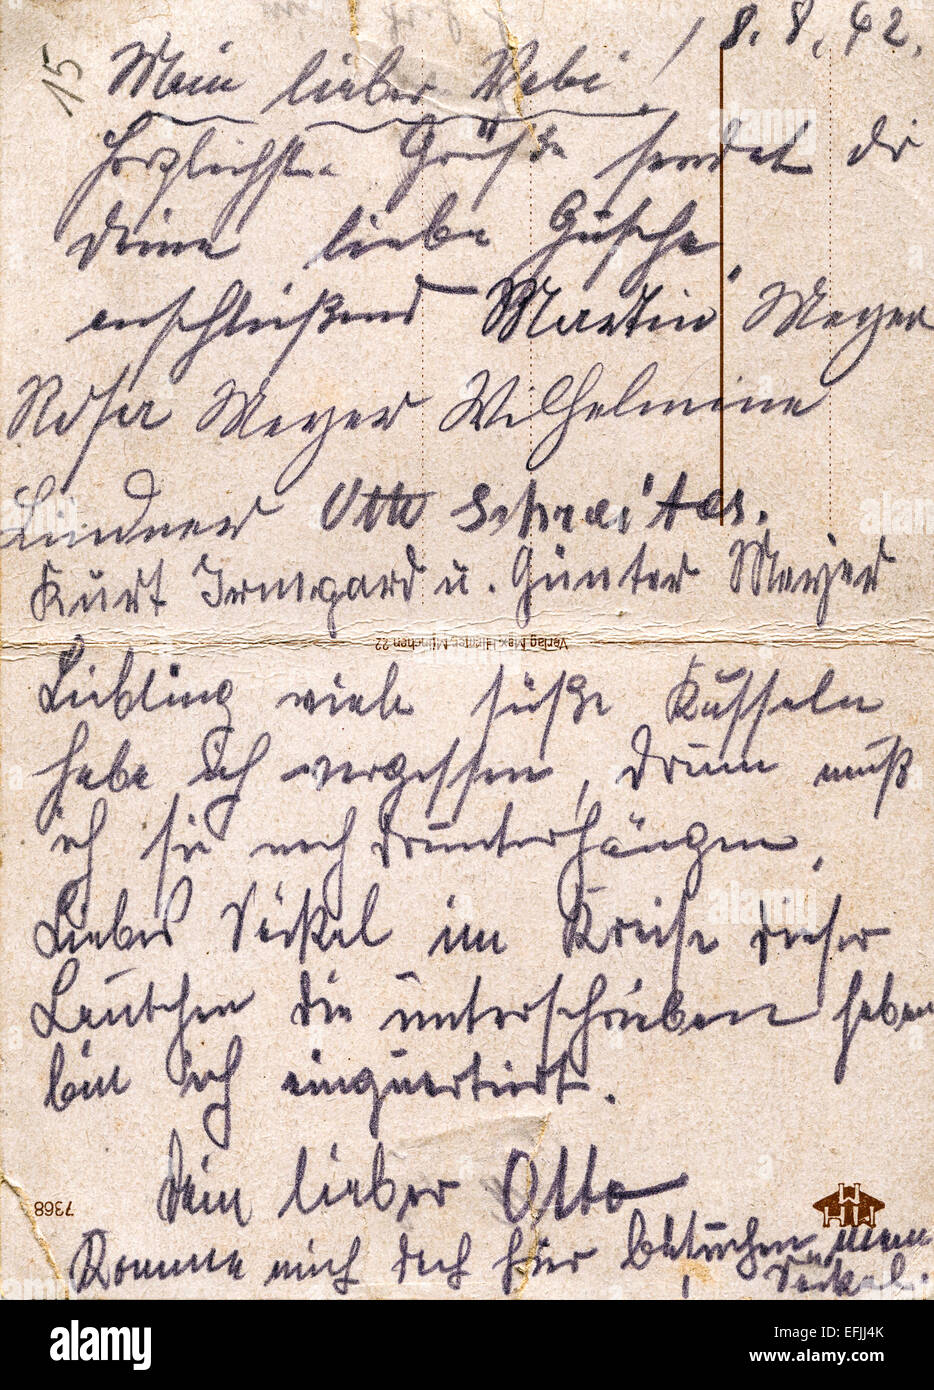 15
8.8.42.
Mein lieber Bebi!
Herzlichste Grüße sendet dir
deine liebe Gusche
anschließend Martin Meyer
Rosa Meyer Wilhelmine
Lindner Otto Schreiter.
Kurt Irmgard u. Günter Meyer
Verlag Max Hirmer, München 22
Liebling viele süße Kusseln
habe ich vergessen, drum muß
ich sie noch drunterhängen.
Liebes Säckel im Kreise dieser
Leutchen die unterschrieben haben
bin ich einquartiert.
Dein lieber Otto
7368
Komme mich doch hier besuchen, mein
Säckel.
alamy
Image ID: EFJJ4K
www.alamy.com